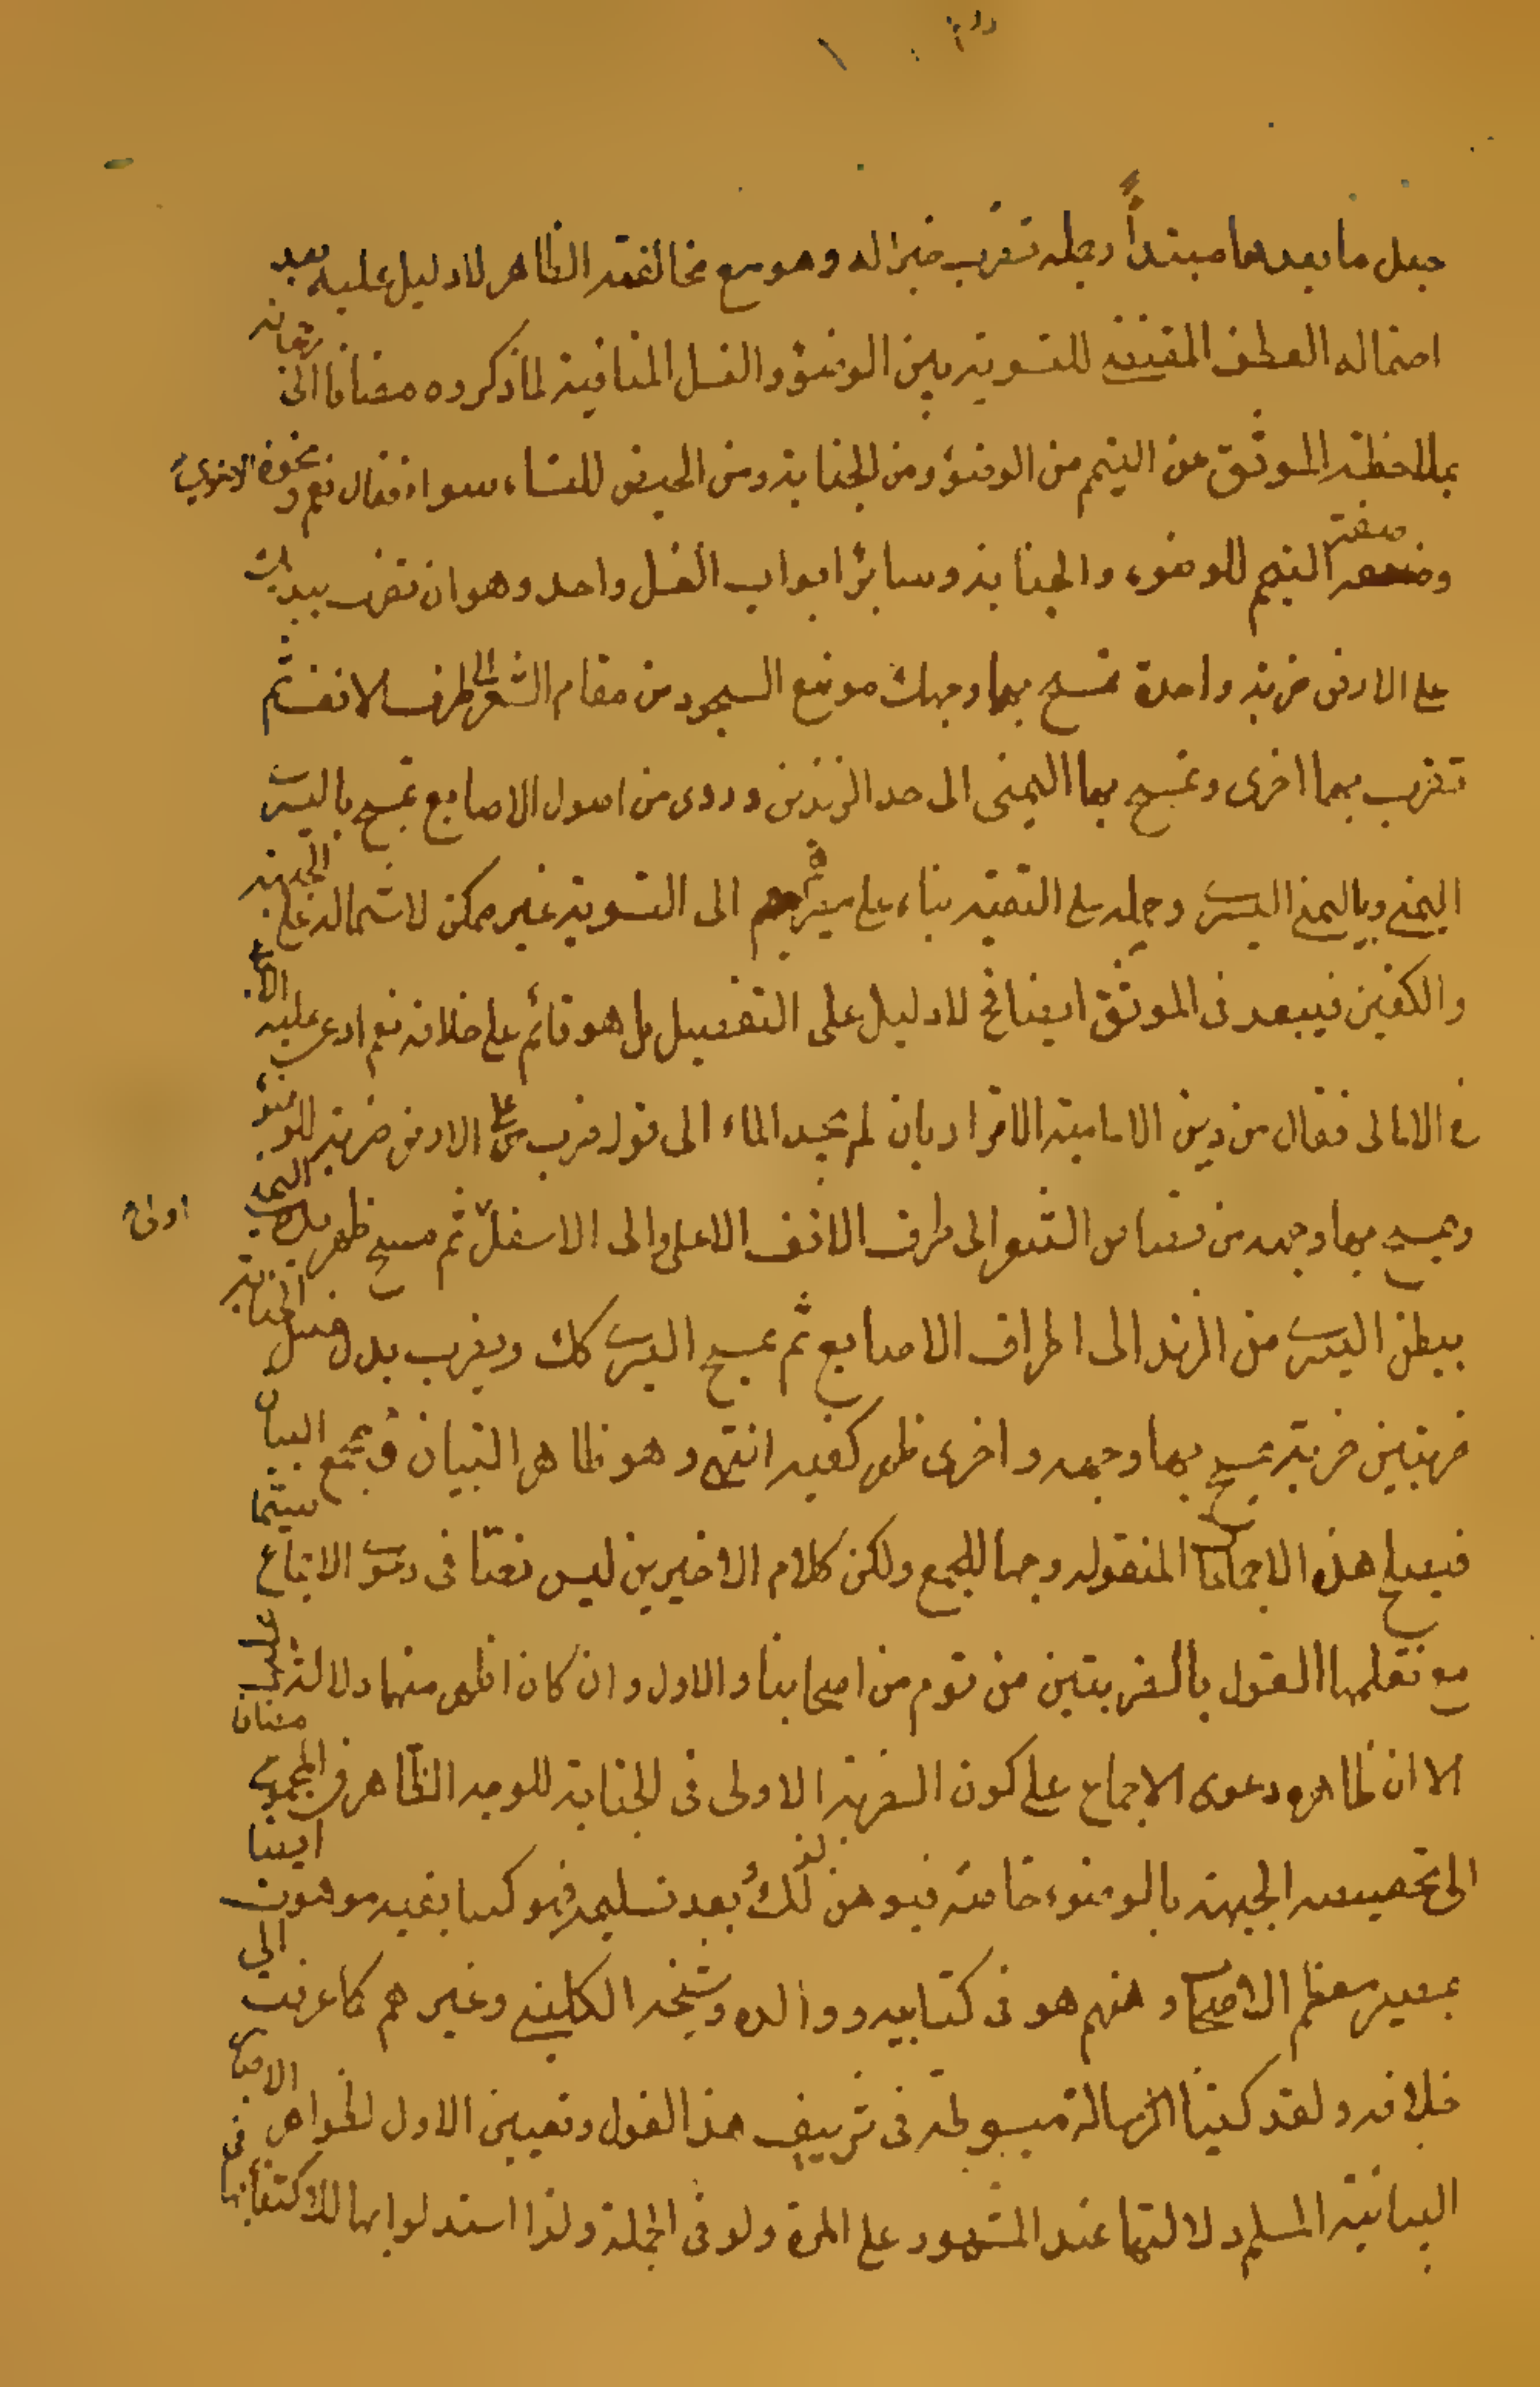 جعل ما بعدها مبتدأ وجملة تضرب خبرا له وهو مع مخالفته الظاهر لا دليل عليه بعد
احتماله العطف المقتضية للتسوية بين الوضوء والغسل المنافية لما ذكروه مضافا الى رجحانه
بملاحظة الموثق عن التيمم من الوضوء ومن الجنابة ومن الحيض للنساء سواء فقال نعم ونحوه الرضوي
وصفة التيمم للوضوء والجنابة وساير ابواب الغسل واحد وهو ان تضرب بيديك
على الارض ضربة واحدة تمسح بهما وجهك موضع السجود من مقام الشعر الى طرف الانف ثم
تضرب بهما اخرى وتمسح بهما اليمنى الى حد الزند وروى من اصول الاصابع تمسح باليسرى
اليمنى وباليمنى اليسرى وحمله على التقية بناء على مصيرهم الى التسوية غير ممكن لاشتماله على الجبهة
والكفين فيبعد فى الموثق ايضا فح لا دليل على التفصيل بل هو قائم على خلافه نعم ادعى عليه
فى الامالى فقال من دين الامامية الاقرار بان لم يجد الماء الى قوله ضرب على الارض ضربة للوضوء
ويمسح بها وجهه من قصاص الشعر الى طرف الانف الاعلى والى الاسفل ثم مسح ظهر يده اليمنى
ببطن اليسرى من الزند الى اطراف الاصابع ثم يمسح اليسرى كك ويضرب بدل غسل الجنابة
ضربتين ضربة يمسح بها وجهه واخرى ظهر كفيه انتهى وهو ظاهر التبيان ومجمع البيان
فيصلح هذه الاجماعات المنقولة وجها للجمع ولكن كلام الاخيرين ليس نصا فى دعوى الاجماع سيما
مع نقلهما القول بالضربتين من قوم من اصحابنا والاول وان كان اظهر منهما دلالة عليه
الا ان ظاهره دعوى الاجماع على كون الضربة الاولى فى الجنابة للوجه الظاهر فى المجموع مضافا
الى تخصيصه الجبهة بالوضوء خاصة فيوهن لذلك بعد تسليمه فهو كسابقيه موهون ايضا
بمصير معظم الاصحاب ومنهم هو فى كتابيه ووالده وشيخه الكلينى وغيرهم كما عرفت الى
خلافه ولقد كتبنا الرسالة مبسوطة فى تزييف هذا القول وتعيين الاول لظواهر الاخبار
البيانية المسلم دلالتها عند المشهور على المرة ولو فى الجملة ولذا استدلوا بها للاكتفاء بها فى